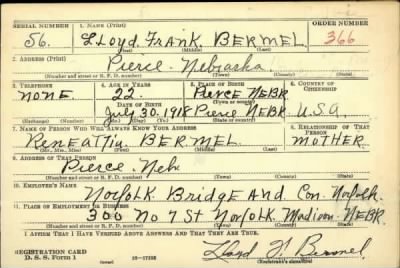 SERIAL NUMBER 1. NAME (Print) ORDER NUMBER
56. LLoyd FRANK BERMEL 366
(First) (Middle) (Last)
2. ADDRESS (Print)
Pierce Nebraska
(Number and street or R. F. D. number) (Town) (County) (State)
3. TELEPHONE 4. AGE IN YEARS 5. PLACE OF BIRTH 6. COUNTRY OF CITIZENSHIP
NONE 22 Pierce NEBR.
DATE OF BIRTH (Town or county)
July 30. 1918 Pierce NEBR U.S.A.
(Exchange) (Number) (Mo.) (Day) (Yr.) (State or country)
7. NAME OF PERSON WHO WILL ALWAYS KNOW YOUR ADDRESS 8. RELATIONSHIP OF THAT PERSON
BERMEL MOTHER.
(Mr., Mrs., Miss) (First) (Middle) (Last)
9. ADDRESS OF THAT PERSON
Pierce Neb
(Number and street or R. F. D. number) (Town) (County) (State)
10. EMPLOYER'S NAME
Norfolk Bridge And Con. Norfolk.
11. PLACE OF EMPLOYMENT OR BUSINESS
300 No 7 St Norfolk. Madison. NEBR.
(Number and street or R. F. D. number) (Town) (County) (State)
I AFFIRM THAT I HAVE VERIFIED ABOVE ANSWERS AND THAT THEY ARE TRUE.
REGISTRATION CARD
D. S. S. Form 1 Lloyd F Bermel
(Registrant's signature)